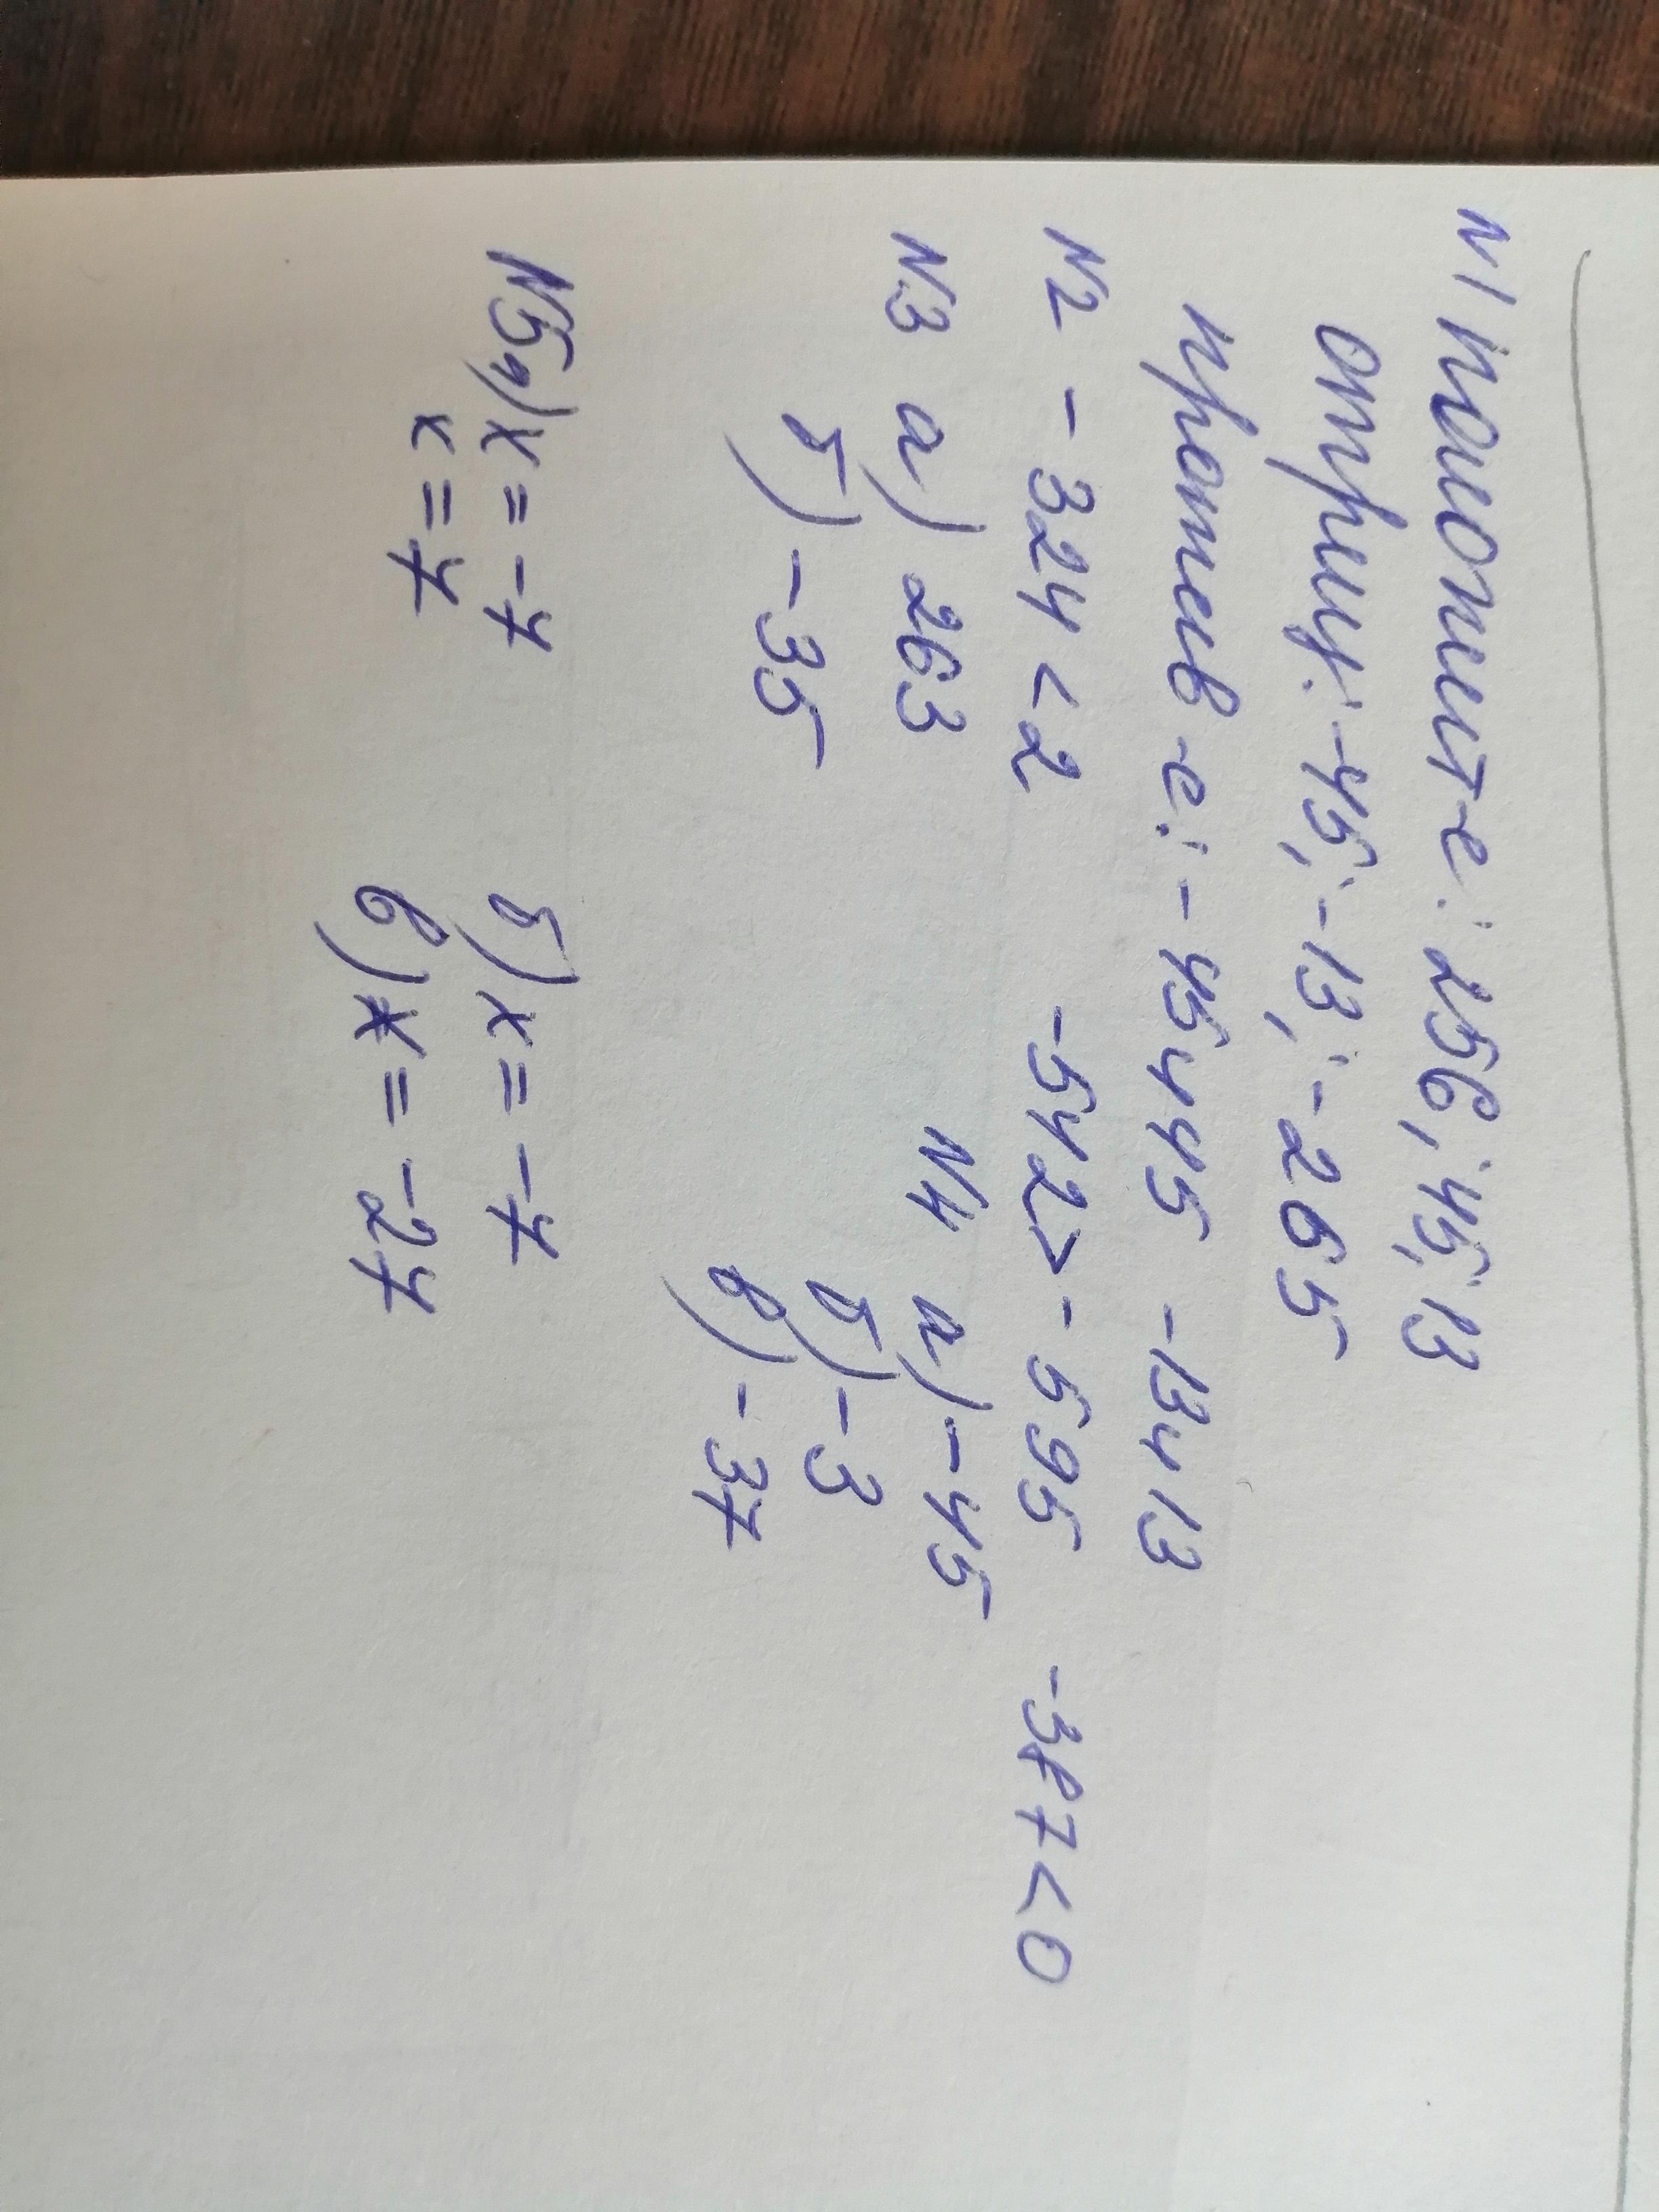 N1 Положит-е: 256; 45; 13
отриц: -45; -13; -265
противоп-е: -45 и 45 -13 и 13
N2 -324 < 2 -542 > -595 -387 < 0
N3 а) 263
б) -35
N4 а) -45
б) -3
в) -37
N5 а) x = -7
x = 7
б) x = -7
в) x = -27